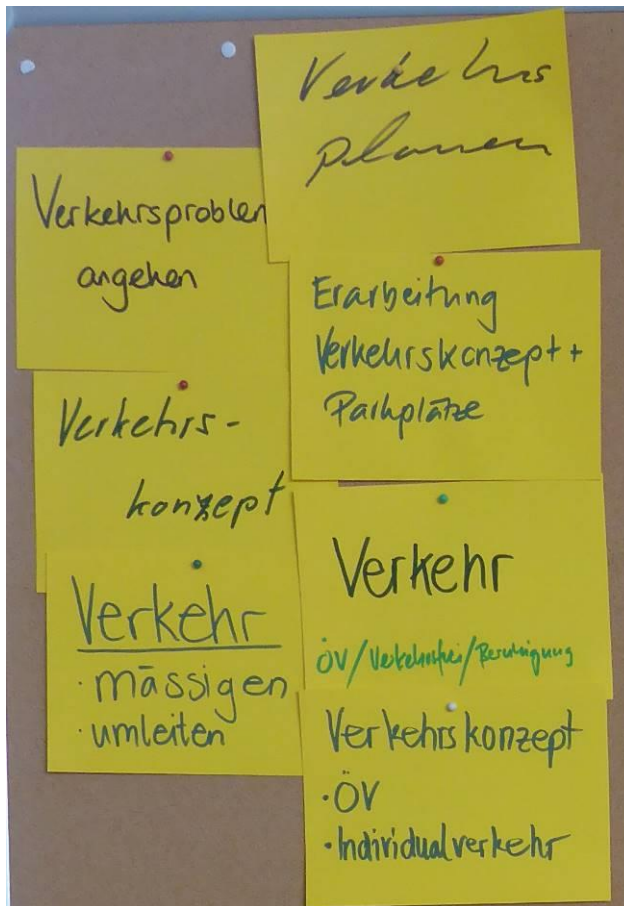 Verkehrs
planen
Verkehrsproblem
angehen
Erarbeitung
Verkehrskonzept +
Parkplätze
Verkehrs-
konzept
Verkehr
ÖV/Verkehrsfrei/Beruhigung
Verkehr
· mässigen
· umleiten
Verkehrskonzept
· ÖV
· Individualverkehr